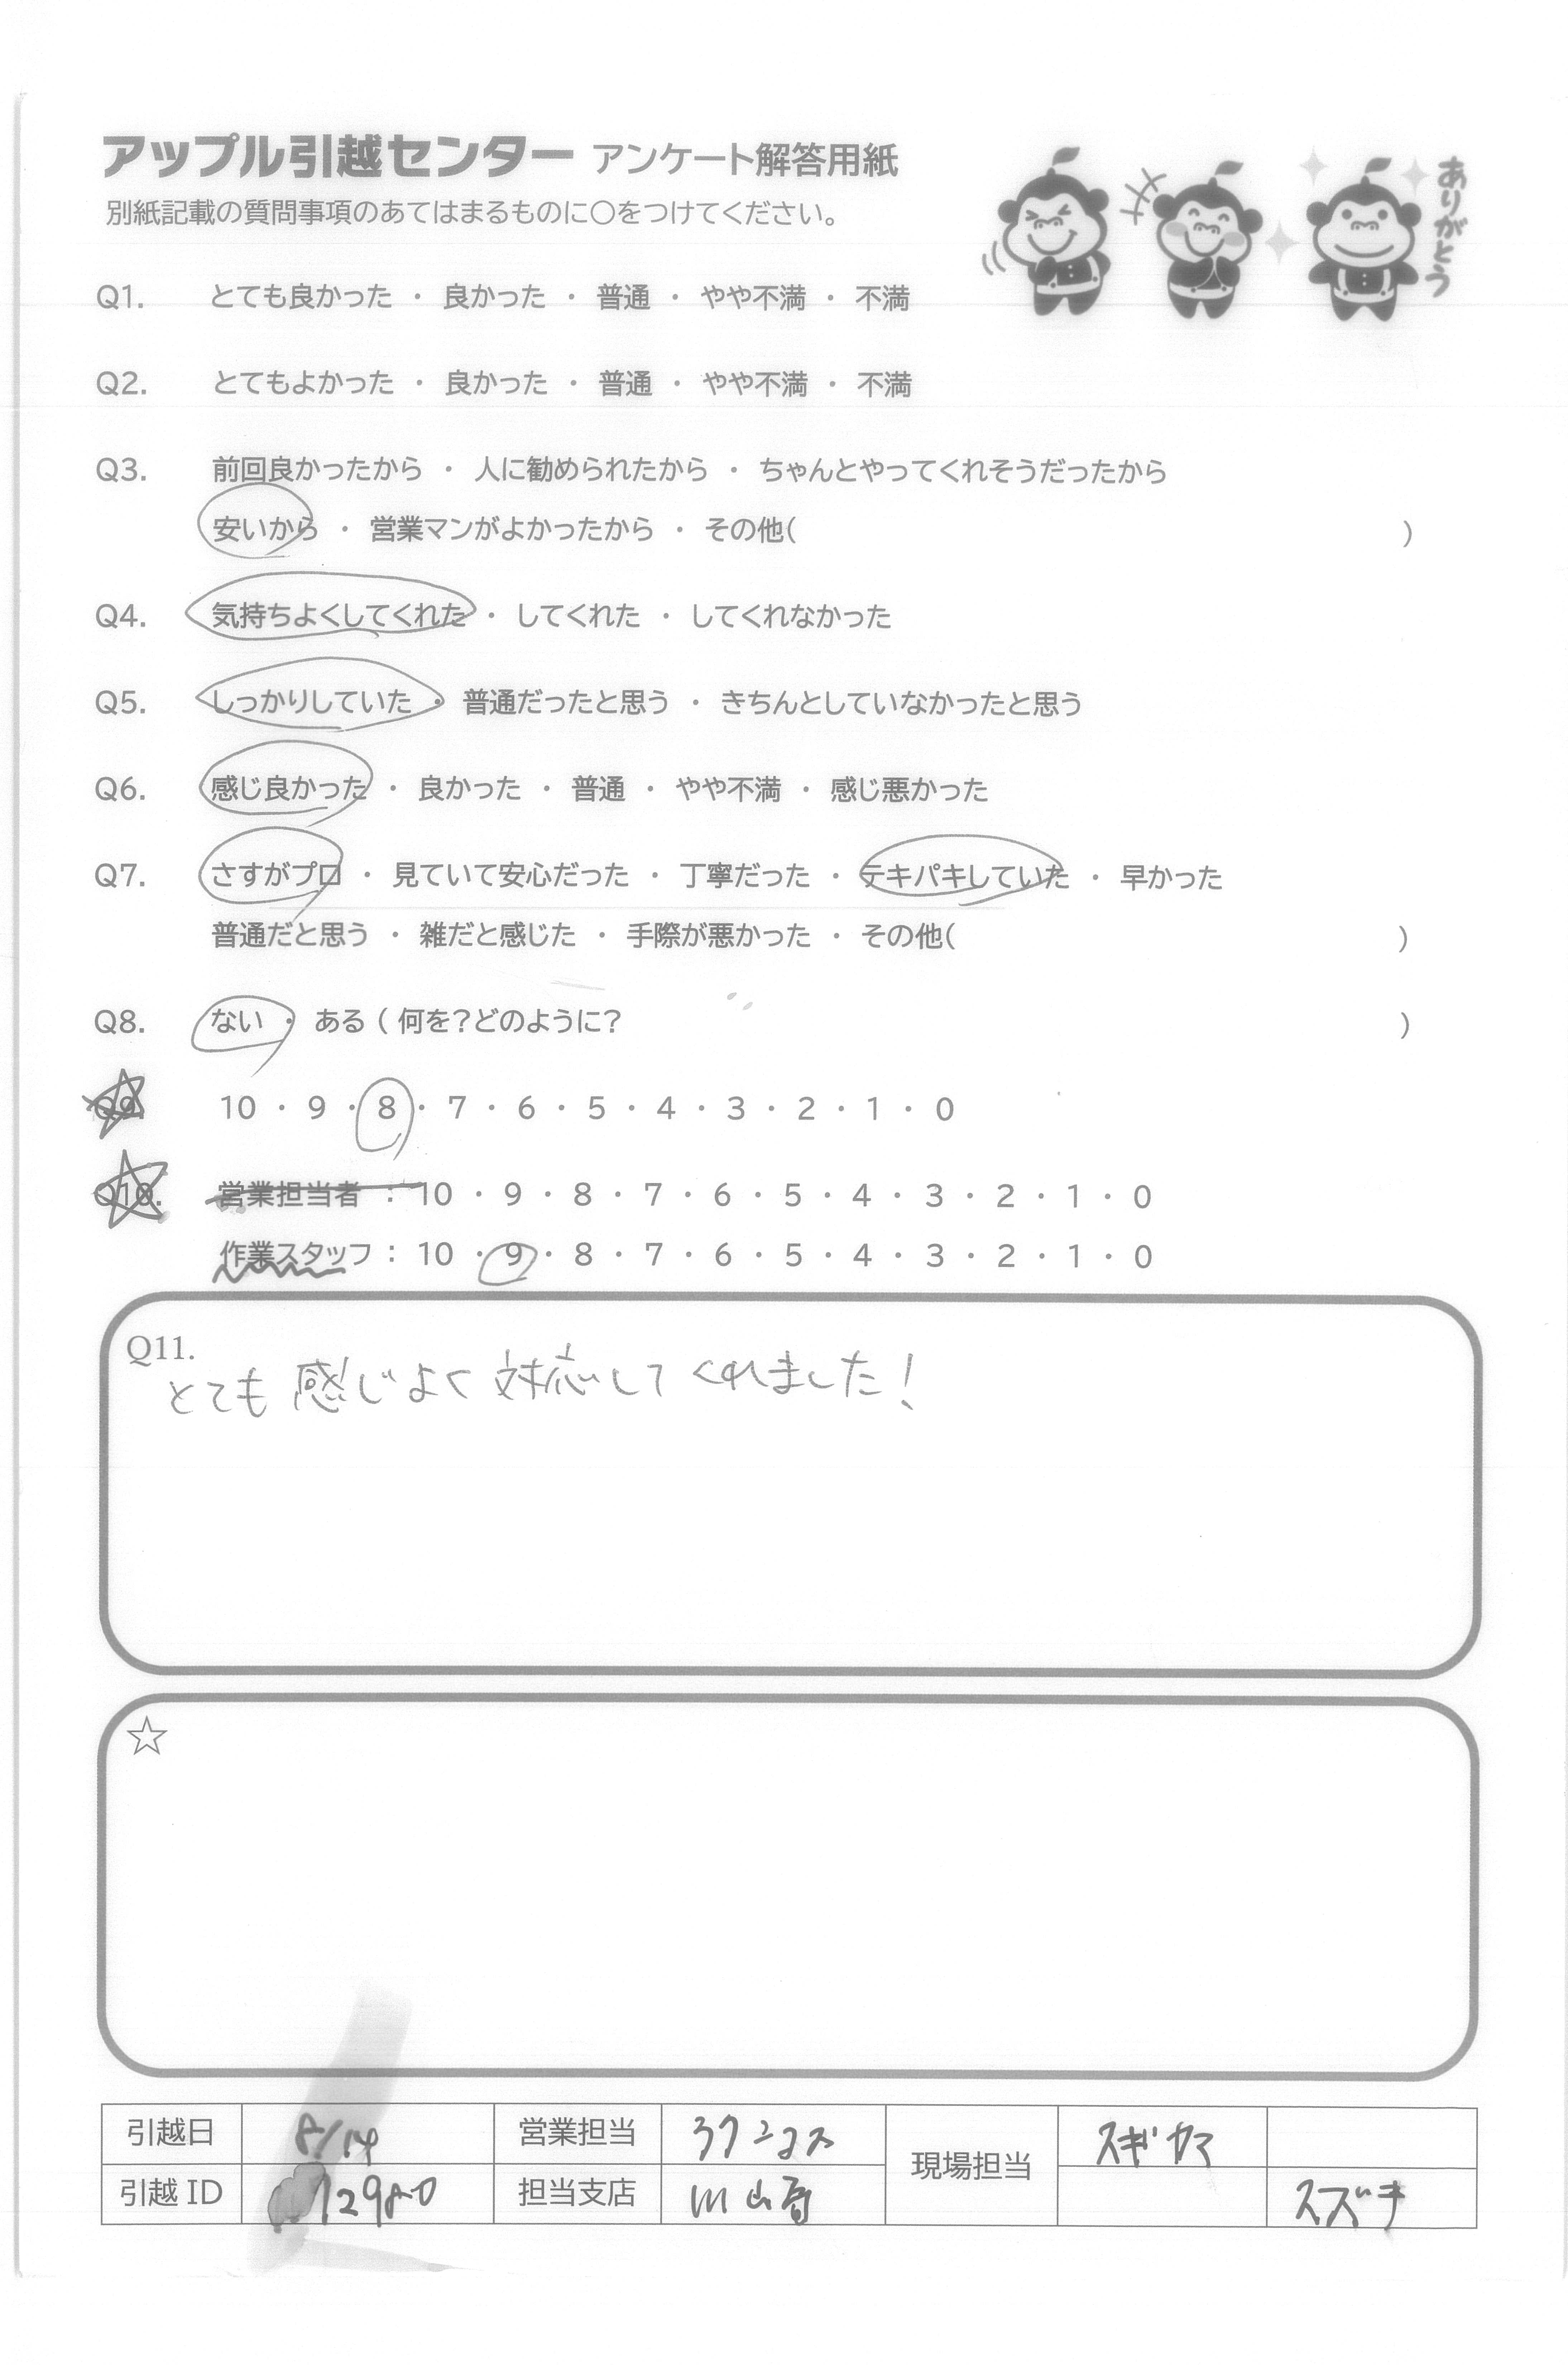 アップル引越センター アンケート解答用紙
別紙記載の質問事項のあてはまるものに○をつけてください。
ありがとう
Q1. とても良かった ・ 良かった ・ 普通 ・ やや不満 ・ 不満
Q2. とてもよかった ・ 良かった ・ 普通 ・ やや不満 ・ 不満
Q3. 前回良かったから ・ 人に勧められたから ・ ちゃんとやってくれそうだったから
安いから ・ 営業マンがよかったから ・ その他( )
Q4. 気持ちよくしてくれた ・ してくれた ・ してくれなかった
Q5. しっかりしていた ・ 普通だったと思う ・ きちんとしていなかったと思う
Q6. 感じ良かった ・ 良かった ・ 普通 ・ やや不満 ・ 感じ悪かった
Q7. さすがプロ ・ 見ていて安心だった ・ 丁寧だった ・ テキパキしていた ・ 早かった
普通だと思う ・ 雑だと感じた ・ 手際が悪かった ・ その他( )
Q8. ない ・ ある ( 何を?どのように? )
Q9. 10 ・ 9 ・ 8 ・ 7 ・ 6 ・ 5 ・ 4 ・ 3 ・ 2 ・ 1 ・ 0
Q10. 営業担当者 : 10 ・ 9 ・ 8 ・ 7 ・ 6 ・ 5 ・ 4 ・ 3 ・ 2 ・ 1 ・ 0
作業スタッフ : 10 ・ 9 ・ 8 ・ 7 ・ 6 ・ 5 ・ 4 ・ 3 ・ 2 ・ 1 ・ 0
Q11.
とても 感じよく 対応して くれました!
☆
引越日 8/14 営業担当 現場担当 スギヤマ
引越 ID 担当支店 スズキ